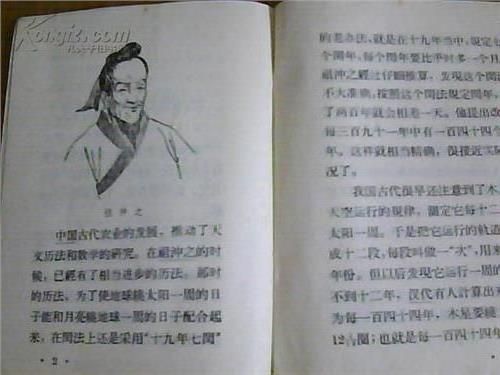 Kongfz.com
祖冲之
中国古代农业的发展，推动了天
文历法和数学的研究。在祖冲之的时
候，已經有了相当进步的历法。那时
的历法，为了使地球繞太阳一周的日
子能和月亮繞地球一周的日子配合起
来，在閏法上还是采用“十九年七閏”
·2·
的老办法，就是在十九年当中，規定七
个閏年，每个閏年要比平时多一个月
祖冲之經过仔細推算，发現这个閏法
不大准确，按照这个閏法規定閏年，
了两百年就会相差一天。他提出改
每三百九十一年中有一百四十四个
年。这样就相当精确，很接近实际
况了。
我国古代很早还注意到了木
天空运行的規律，測定它每十二
太阳一周。于是把它运行的軌道
成十二段，每段叫做一“次”，用来
年份。但以后发現它运行一周的
不到十二年，汉代有人計算出
为每一百四十四年，木星要繞
12古閏；也就是每一百四十四